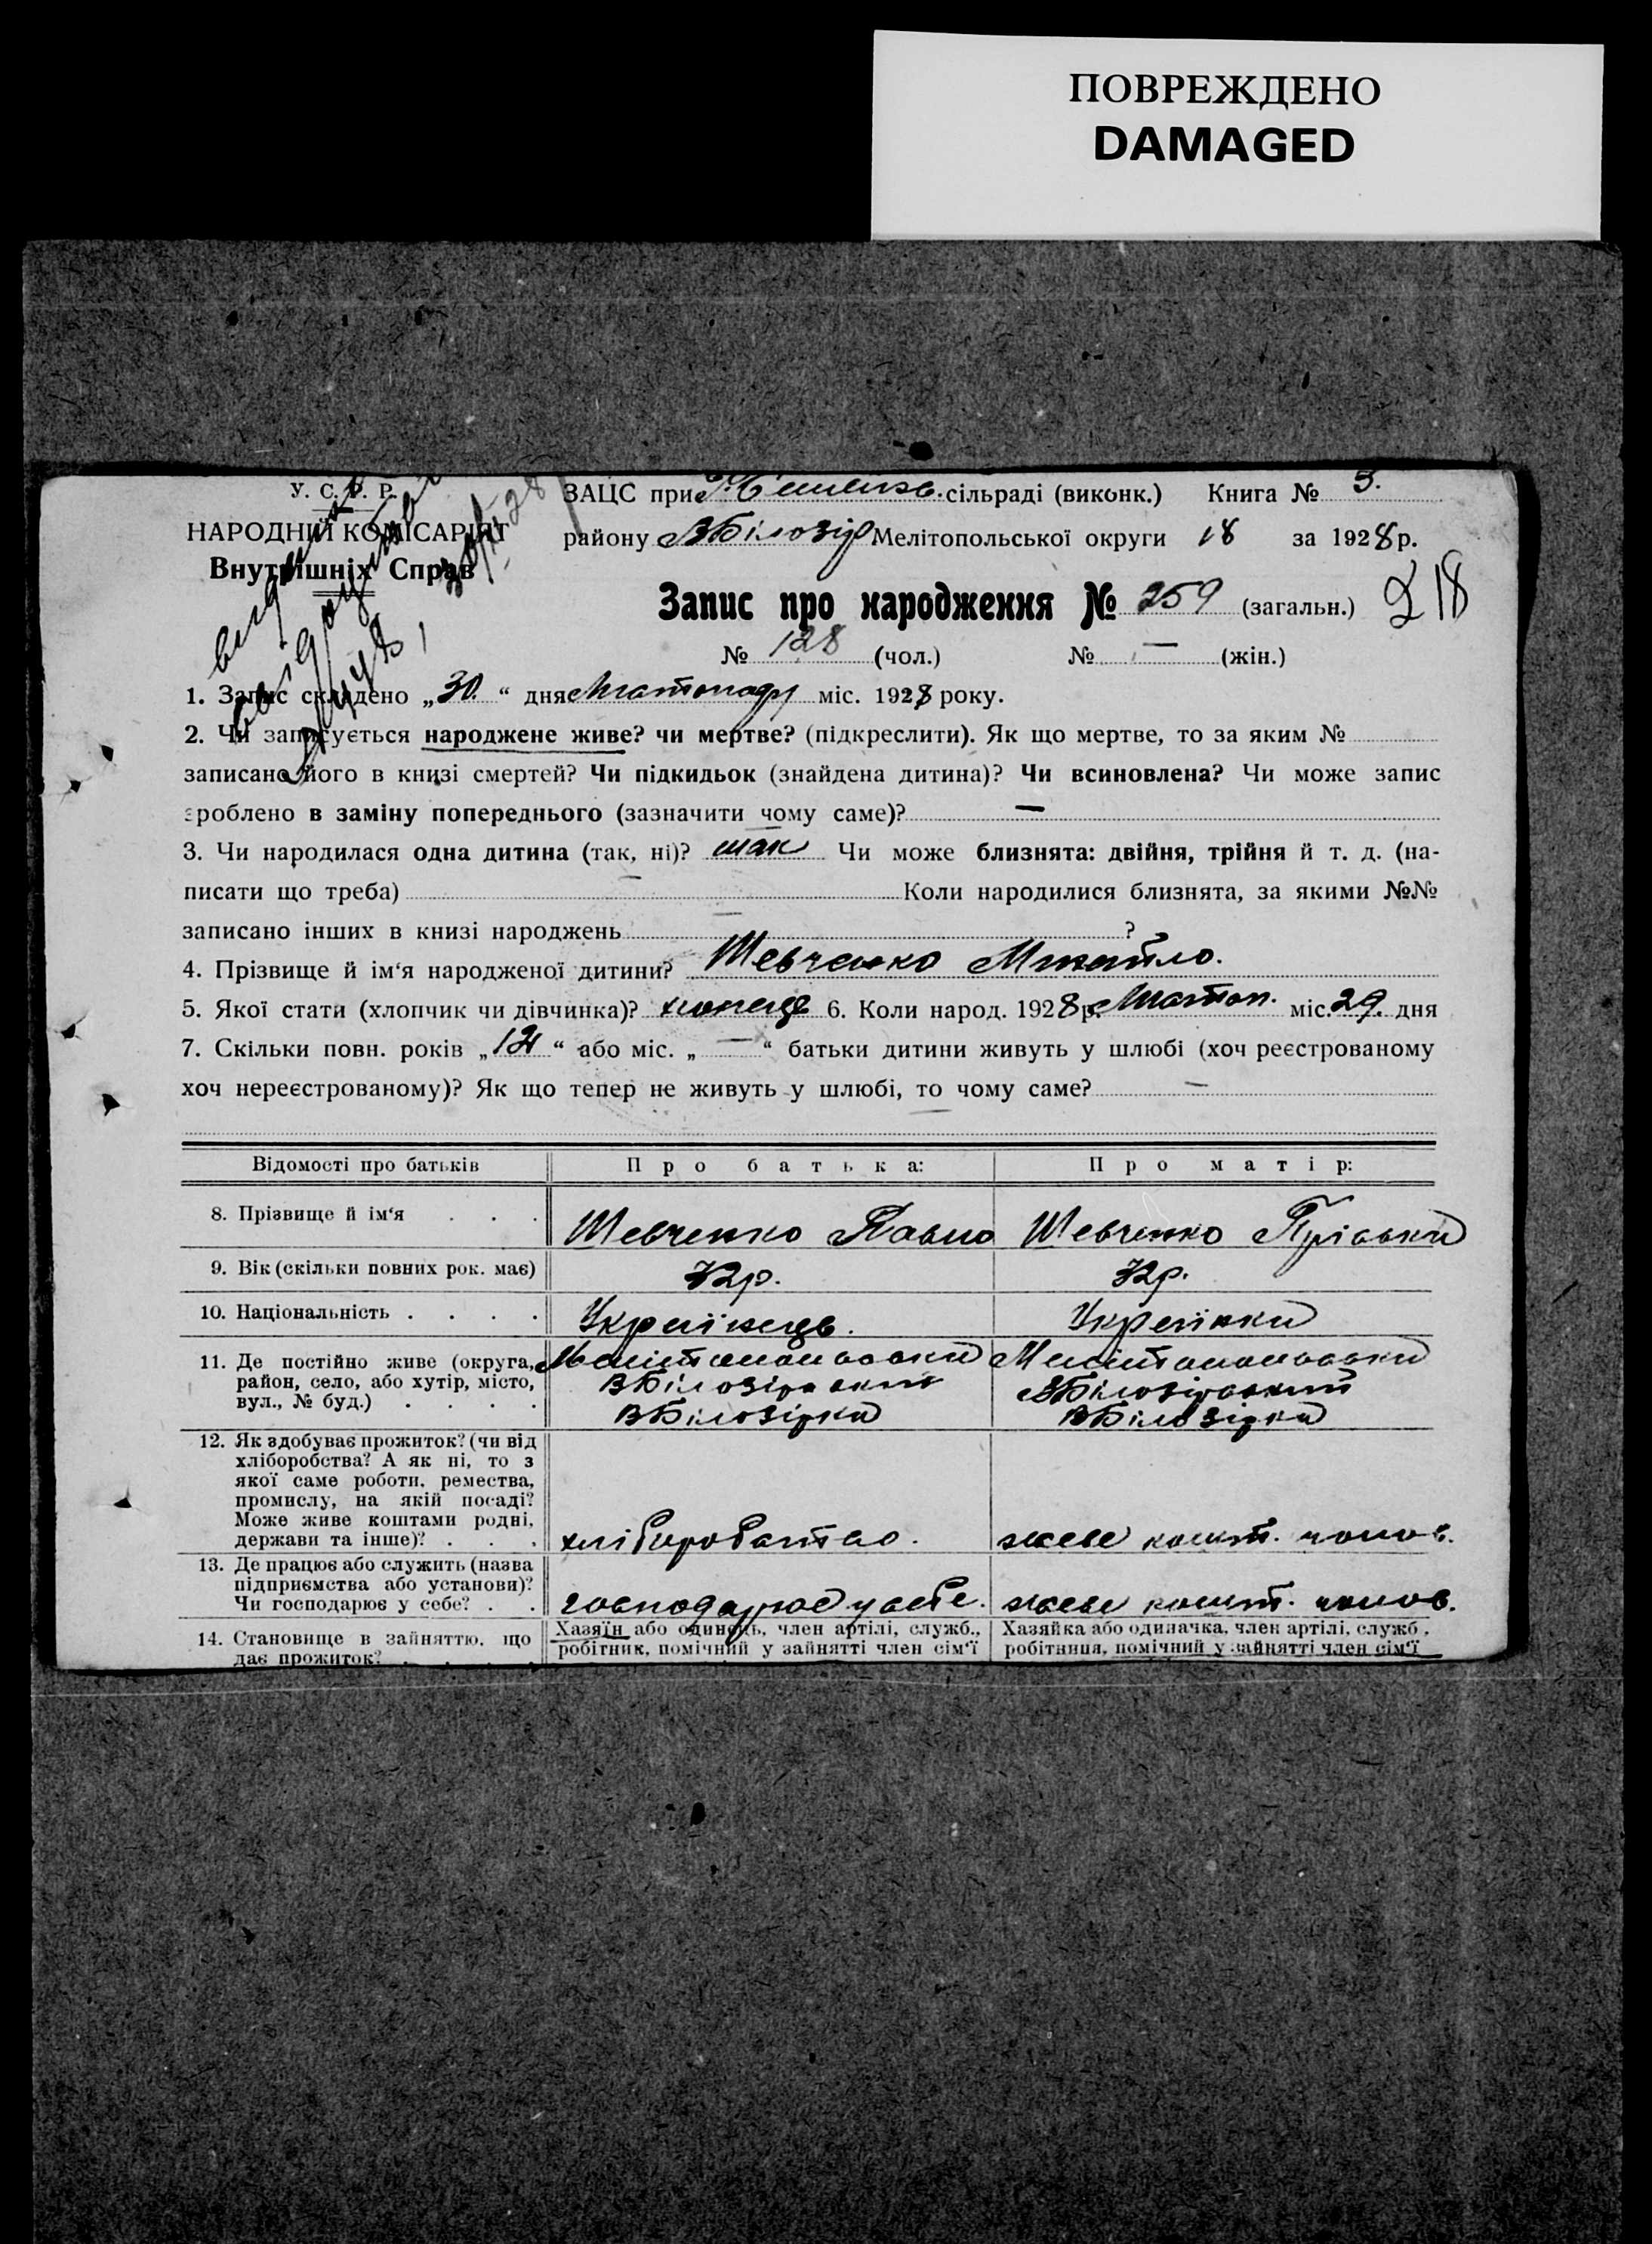 ПОВРЕЖДЕНО
DAMAGED
У. С. Р. Р.
НАРОДНІЙ КОМІСАРІЯТ
Внутрішніх Справ
ЗАЦС при сільраді (виконк.) Книга № 3.
району ВБілозір Мелітопольської округи 18 за 1928 р.
Запис про народження № 259 (загальн.) 218
№ 128 (чол.) № — (жін.)
1. Запис складено „30.“ дня Листопаду міс. 1928 року.
2. Чи записується народжене живе? чи мертве? (підкреслити). Як що мертве, то за яким №
записано його в книзі смертей? Чи підкидьок (знайдена дитина)? Чи всиновлена? Чи може запис
зроблено в заміну попереднього (зазначити чому саме)? —
3. Чи народилася одна дитина (так, ні)? так Чи може близнята: двійня, трійня й т. д. (на-
писати що треба) — Коли народилися близнята, за якими №№
записано інших в книзі народжень — ?
4. Прізвище й ім‘я народженої дитини? Шевченко Михайло.
5. Якої стати (хлопчик чи дівчинка)? хлопець 6. Коли народ. 1928 р. Листоп. міс. 29. дня
7. Скільки повн. років „12“ або міс. „—“ батьки дитини живуть у шлюбі (хоч реєстрованому
хоч нереєстрованому)? Як що тепер не живуть у шлюбі, то чому саме? —
Відомості про батьків Про батька: Про матір:
8. Прізвище й ім‘я . . . Шевченко Павло Шевченко Пріська
9. Вік (скільки повних рок. має) 32р. 32р.
10. Національність . . . . Українець. Українка
11. Де постійно живе (округа, Мелітопольська Мелітопольська
район, село, або хутір, місто, ВБілозірський ВБілозірський
вул., № буд.) . . . . ВБілозірка ВБілозірка
12. Як здобуває прожиток? (чи від
хліборобства? А як ні, то з
якої саме роботи, ремества,
промислу, на якій посаді?
Може живе коштами родні,
держави та інше)? . . . хліборобство. живе кошт. чолов.
13. Де працює або служить (назва
підприємства або установи)?
Чи господарює у себе? . . господарює у себе. живе кошт. чолов.
14. Становище в зайняттю, що Хазяїн або одинець, член артілі, служб., Хазяйка або одиначка, член артілі, служб.,
дає прожиток? . . . . робітник, помічний у зайнятті член сім‘ї робітниця, помічний у зайнятті член сім‘ї